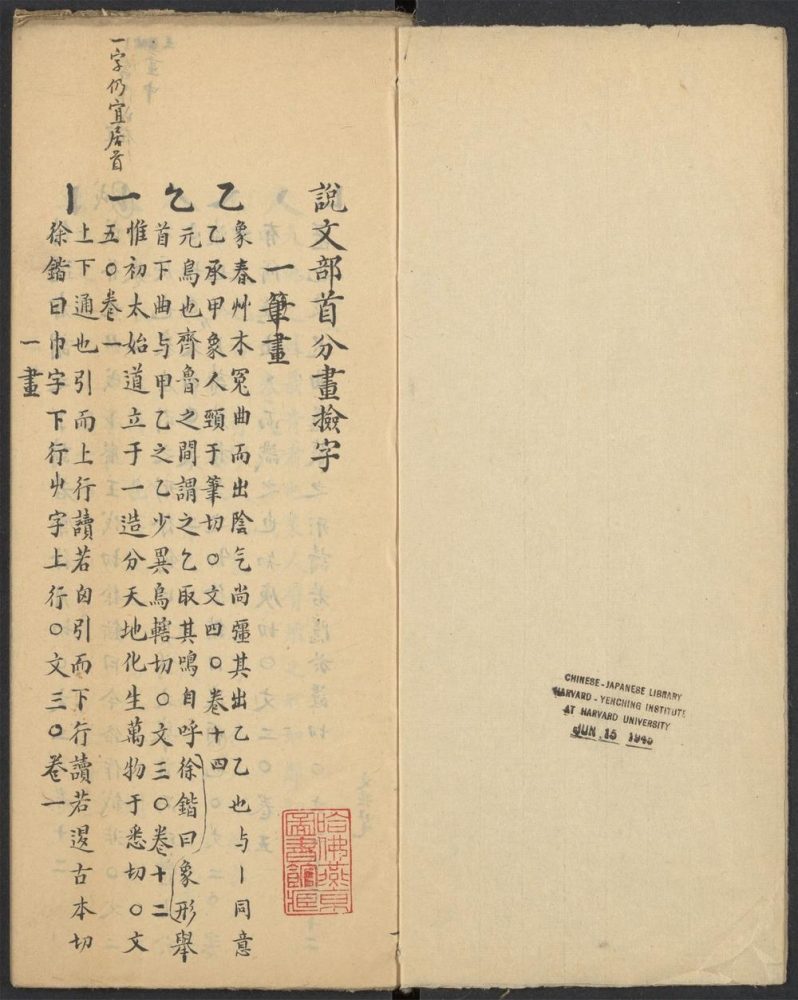 說文部首分畫撿字
一筆畫
乙 象春艸木冤曲而出陰气尚彊其出乙乙也与丨同意
乙承甲象人頸于筆切○文四○卷十四
乞 元鳥也齊魯之間謂之乞取其鳴自呼徐鍇曰象形舉
首下曲与甲乙之乙少異烏轄切○文三○卷十二
一 惟初太始道立于一造分天地化生萬物于悉切○文
五○卷一
丨 上下通也引而上行讀若囟引而下行讀若𨓤古本切
徐鍇曰中字下行㞢字上行○文三○卷一
一畫
一字仍宜居首
哈佛燕京
圖書館藏
CHINESE-JAPANESE LIBRARY
HARVARD-YENCHING INSTITUTE
AT HARVARD UNIVERSITY
JUN 15 1945